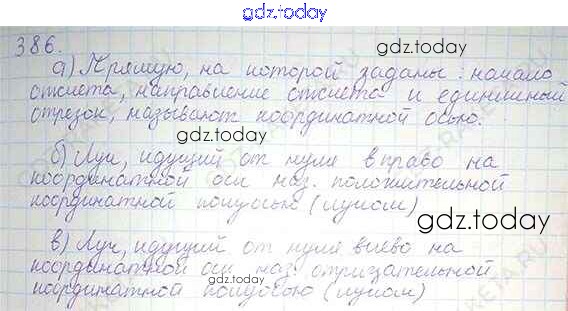 gdz.today
386.
gdz.today
а) Прямую, на которой заданы: начало
отсчета, направление отсчета и единичный
отрезок, называют координатной осью.
gdz.today
б) Луч, идущий от нуля вправо на
координатной оси наз. положительной
координатной полуосью (лучом)
gdz.today
в) Луч, идущий от нуля влево на
координатной оси наз. отрицательной
координатной полуосью (лучом)
gdz.today